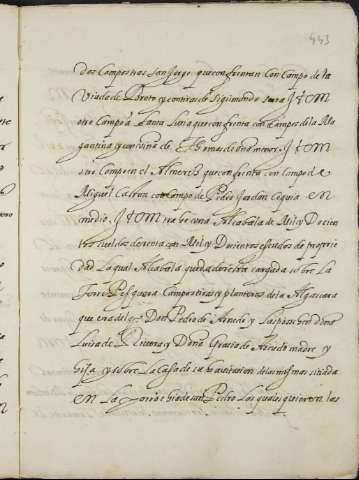 443
dos Campos tras San Jorge que confrentan Con Campo de la
Viuda de Proto y con tiras de Sigismundo Iten
otro Campo a Santa Lucia que confrenta con Campo de la Ma
gantina y con viña de Thomas de menor, Iten
otro Campo en el que confrenta con campo de
Miguel Calbon con Campo de Pedro Jordan Cequia en
medio, Iten una Alcabala de Mil y Docien
tos sueldos de renta con Mil y Docientos escudos de proprie
dad La qual Alcabala queda de resta cargada sobre La
Torre Pesquera Campos tiras y plantero de la Algecara
que era del Don Pedro de Arnedo y Las posehen dona
Luisa de Rivera y Dona Gracia de Arnedo madre y
hija y sobre La Casa de su havitacion de las mismas sitiada
en La Parrochia de san Pedro Las quales quieren las